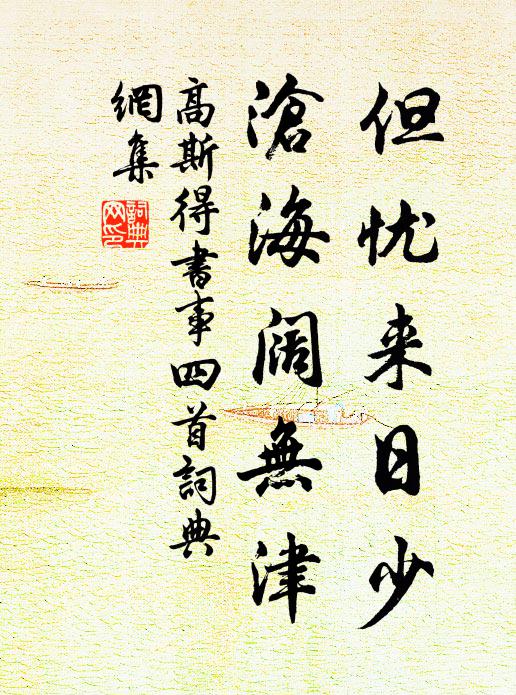 但忧来日少
滄海阔無津
高斯得書事四首詞典
網集
詞典
网印